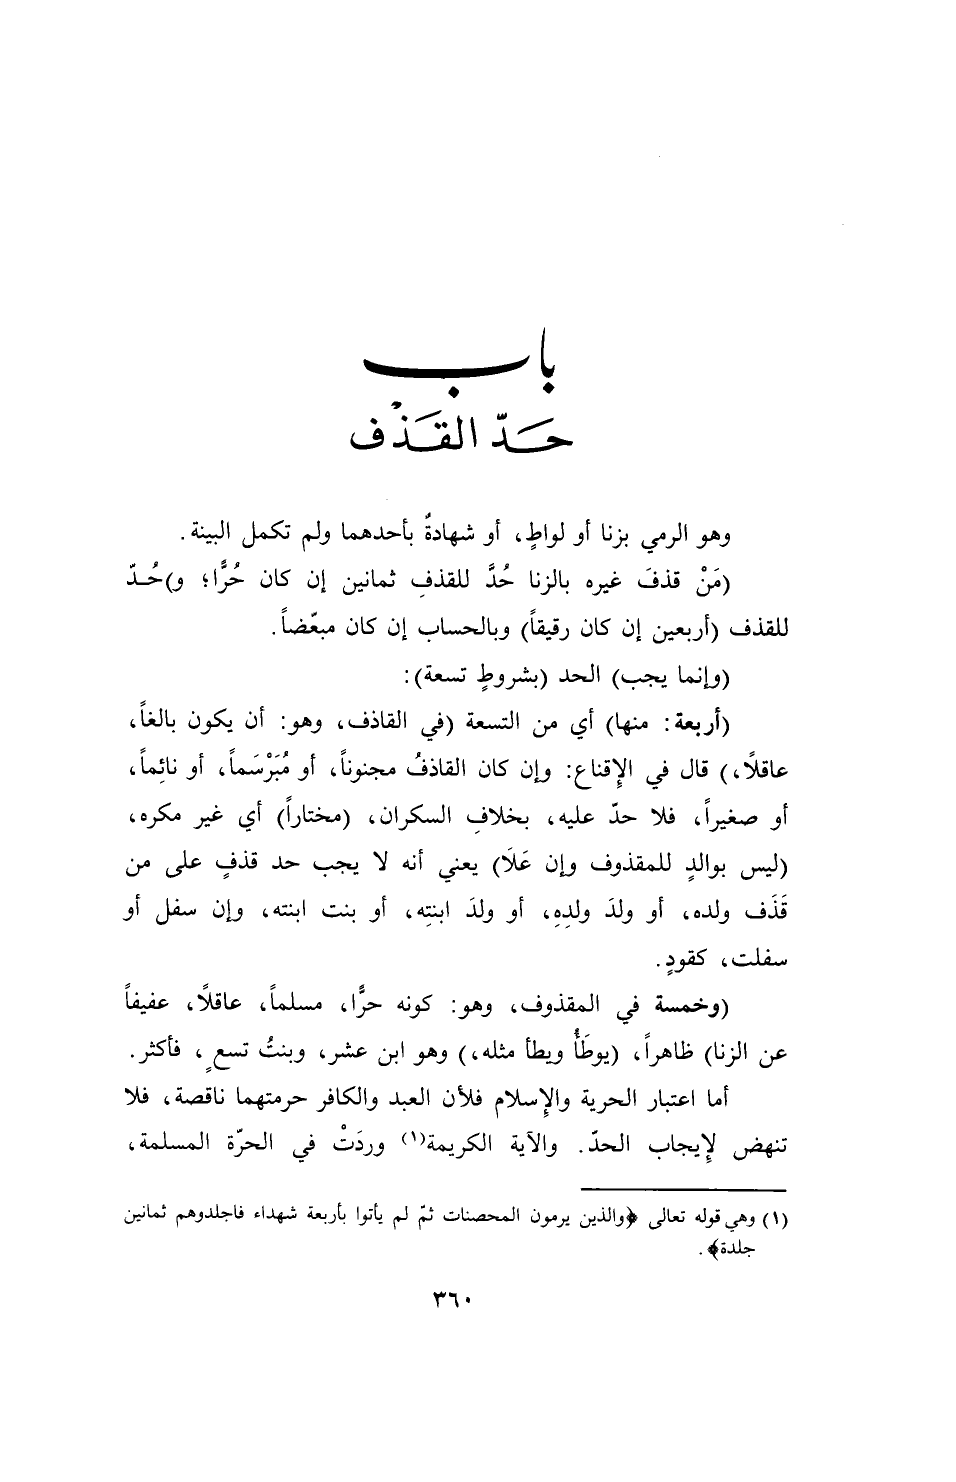 باب
حَدّ القَذْف
وهو الرمي بزنا أو لواطٍ، أو شهادةٌ بأحدهما ولم تكمل البينة.
(مَنْ قذفَ غيره بالزنا حُدَّ للقذفِ ثمانين إن كان حُرًّا؛ و)حُدّ
للقذف (أربعين إن كان رقيقاً) وبالحساب إن كان مبعّضاً.
(وإنما يجب) الحد (بشروطٍ تسعة):
(أربعة: منها) أي من التسعة (في القاذف، وهو: أن يكون بالغاً،
عاقلاً،) قال في الإِقناع: وإن كان القاذفُ مجنوناً، أو مُبَرْسَماً، أو نائِماً،
أو صغيراً، فلا حدّ عليه، بخلافِ السكران، (مختاراً) أي غير مكره،
(ليس بوالدٍ للمقذوف وإن عَلَا) يعني أنه لا يجب حد قذفٍ على من
قَذَف ولده، أو ولدَ ولدِهِ، أو ولدَ ابنتِه، أو بنت ابنته، وإن سفل أو
سفلت، كقودٍ.
(وخمسة في المقذوف، وهو: كونه حرًّا، مسلماً، عاقلاً، عفيفاً
عن الزنا) ظاهراً، (يوطَأُ ويطأ مثله،) وهو ابن عشر، وبنتُ تسعٍ، فأكثر.
أما اعتبار الحرية والإِسلام فلأن العبد والكافر حرمتهما ناقصة، فلا
تنهض لإِيجاب الحدّ. والآية الكريمة(١) وردَتْ في الحرّة المسلمة،
(١) وهي قوله تعالى ﴿والذين يرمون المحصنات ثمّ لم يأتوا بأربعة شهداء فاجلدوهم ثمانين
جلدة﴾.
٣٦٠